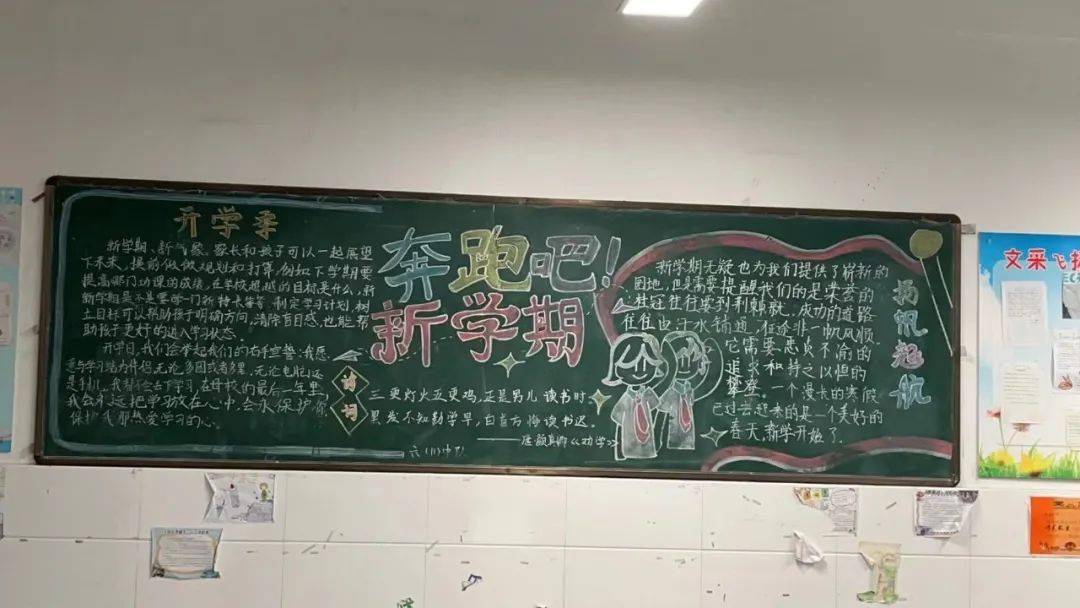 开学季
新学期、新气象、家长和孩子可以一起展望
下未来，提前做做规划和打算，例如下学期要
提高那门功课的成绩，在学校超越的目标是什么，新
新学期是不是要学一门新特长等等，制定学习计划，树
立目标可以帮助孩子明确方向，清除盲目感，也能帮
助孩子更好的进入学习状态。
开学日，我们会举起我们的右手宣誓：我愿
意与学习结为伴侣，无论
无论电脑还
是手机，我都会
学习，在母校的最后一年里，
我会永远把学习放在心中，会永保护你
保护我那热爱学习的心。
奔跑吧！
新学期
诗词
三更灯火五更鸡，正是男儿读书时
黑发不知勤学早，白首方悔读书迟。
——唐颜真卿《劝学》
新学期无疑也为我们提供了崭新的
园地，但更需要提醒我们的是荣誉的
桂冠往往要到荆棘就，成功的道路
往往由汗水铺道，征途非一帆风顺，
它需要忠贞不渝的
追求和持之以恒的
攀登。一个漫长的寒假
已过去起来的是一个美好的
春天，新学开始了
扬帆起航
文采飞扬